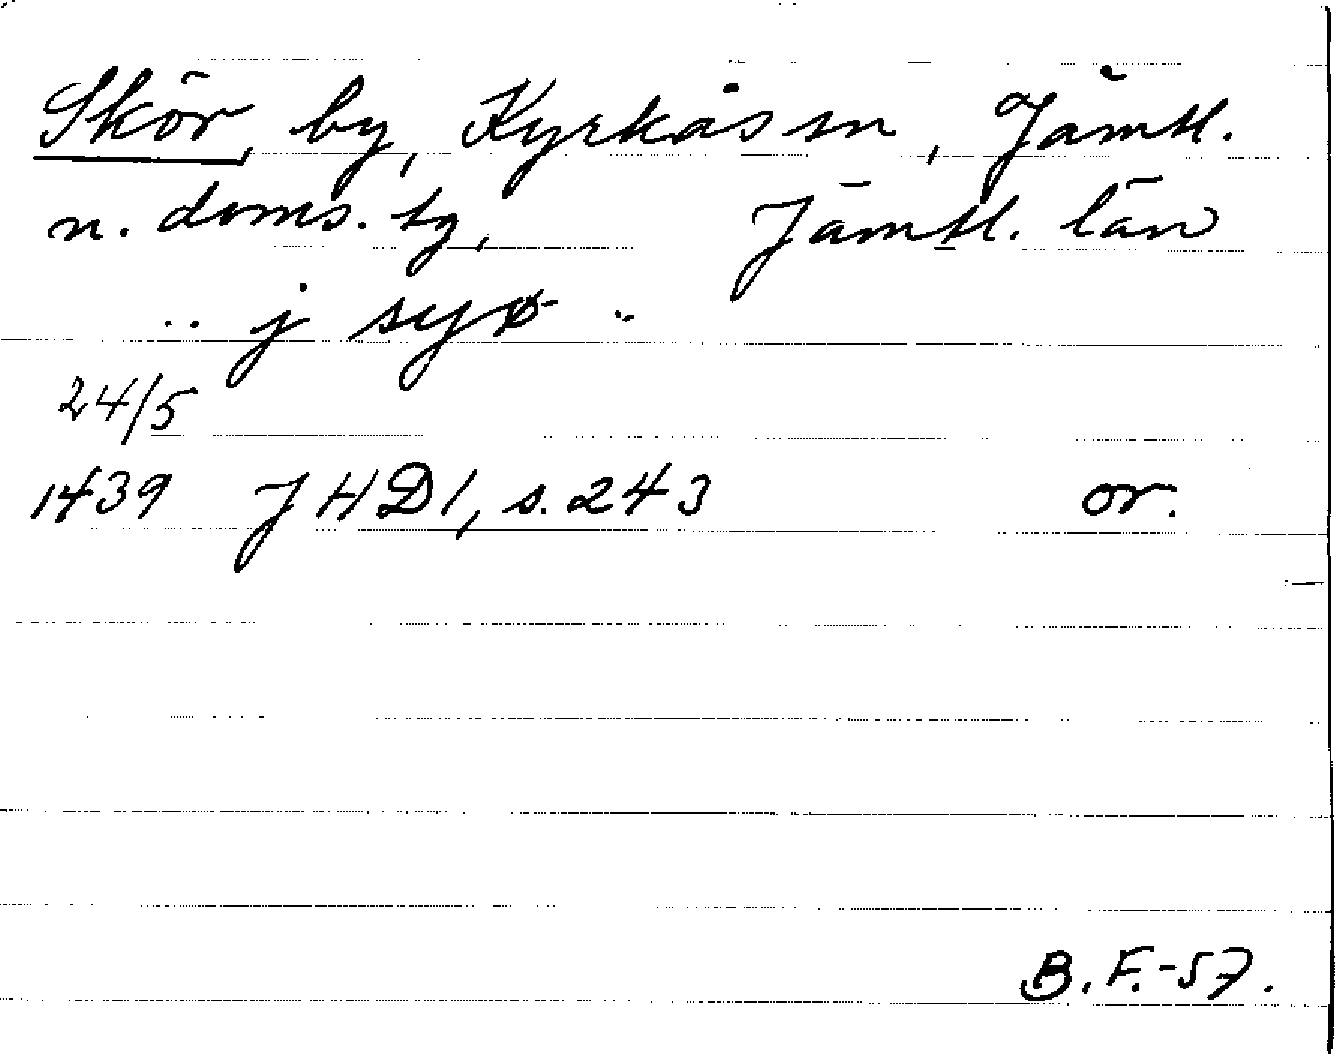 Skör, by, Kyrkås sn, Jämtl.
n. doms. tg, Jämtl. län
.. j syø ..
24/5
1439 JHD 1, s. 243 or.
B. F. -57.